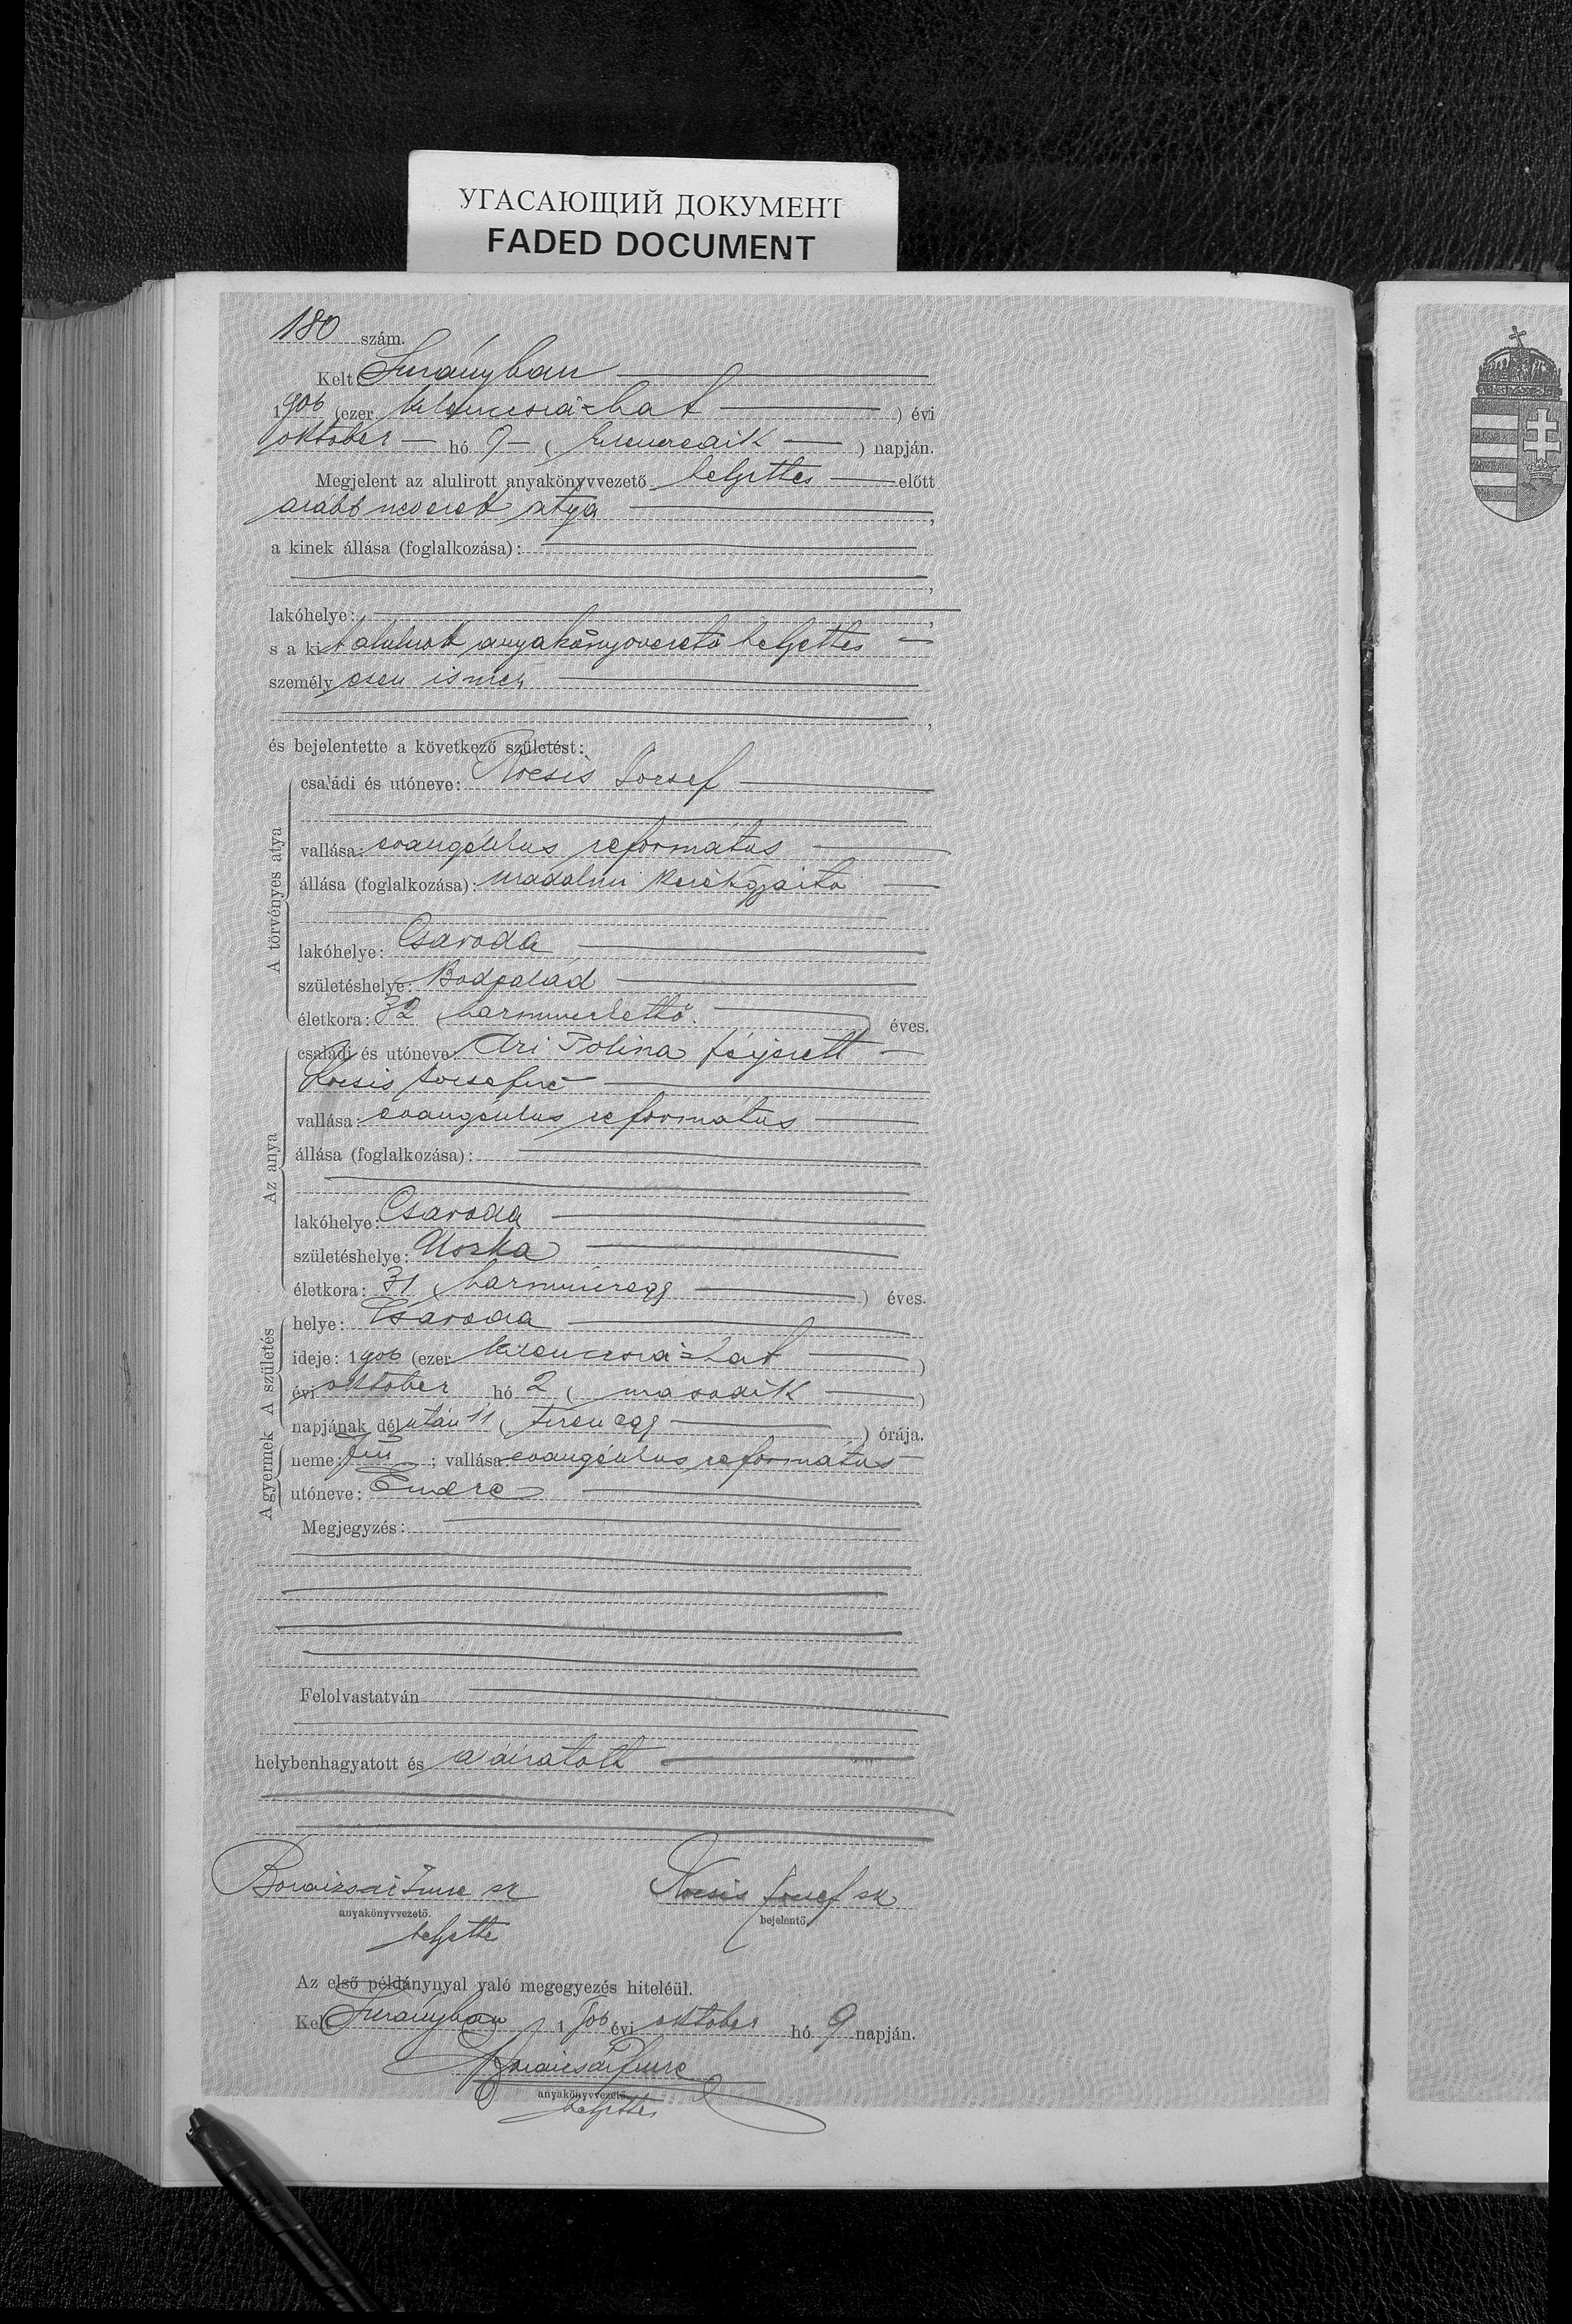 УГАСАЮЩИЙ ДОКУМЕНТ
FADED DOCUMENT
180 szám.
Kelt Surányban
1906 (ezer kilenczszáz-hat) évi
október hó 9 (kilenczedik) napján.
Megjelent az alulirott anyakönyvvezető helyettes előtt
alább nevezett atya,
a kinek állása (foglalkozása):
,
lakóhelye: ,
s a kit alulirott anyakönyvvezető helyettes
személyesen ismer,
,
és bejelentette a következő születést:
A törvényes atya
családi és utóneve: Kocsis József
vallása: evangélikus református
állása (foglalkozása): uradalmi kerékgyártó
lakóhelye: Csaroda
születéshelye: Bodpalád
életkora: 32 (harminczkettő) éves.
Az anya
családi és utóneve: Uri Polina férjezett
Kocsis Józsefné
vallása: evangélikus református
állása (foglalkozása):
lakóhelye: Csaroda
születéshelye: Uszka
életkora: 31 (harminczegy) éves.
A születés
helye: Csaroda
ideje: 1906 (ezer kilenczszáz-hat)
évi október hó 2 (második)
napjának délután 11 (tizenegy) órája.
A gyermek
neme: fiú; vallása: evangélikus református
utóneve: Endre
Megjegyzés:
Felolvastatván
helybenhagyatott és aláiratott
Imre sk
anyakönyvvezető.
helyette
Kocsis József sk
bejelentő.
Az első példánynyal való megegyezés hiteléül.
Kelt Surányban 1906 évi október hó 9 napján.
Imre
anyakönyvvezető
helyettes